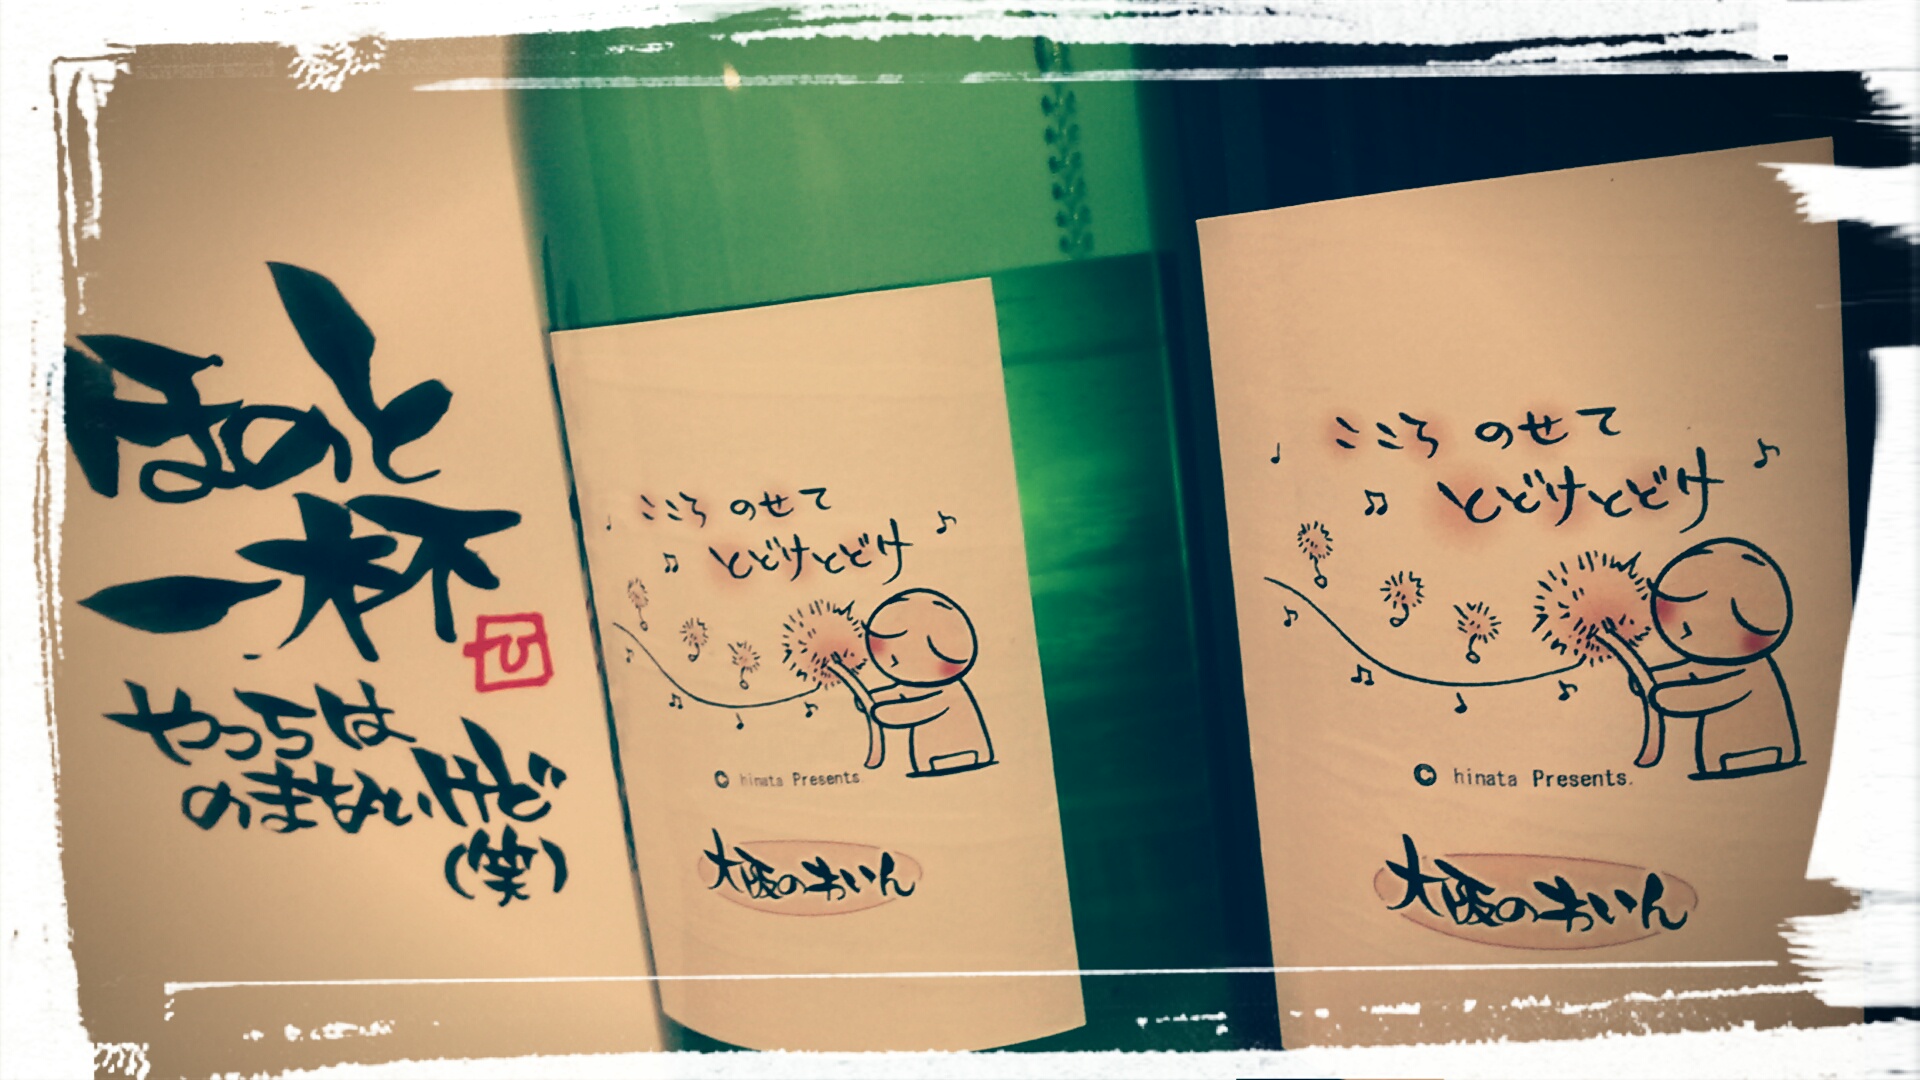 ほっと
一杯
ひ
やっらは
のまないけど
(笑)
こころ のせて
とどけとどけ
© hinata Presents.
大阪のおいん
こころ のせて
とどけとどけ
© hinata Presents.
大阪のおいん